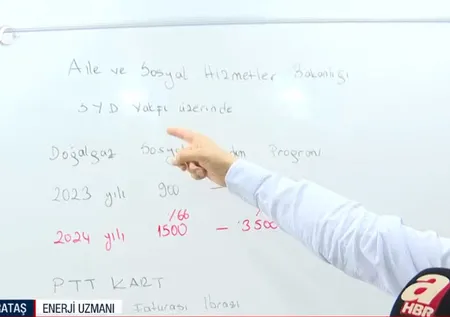 Aile ve Sosyal Hizmetler Bakanlığı
SYD Vakfı üzerinde
Doğalgaz Sosyal Programı
2023 yılı 900 -
%66
2024 yılı 1500 - 3500
PTT KART
Faturası İbrazı
ATAŞ ENERJİ UZMANI
a
HBR